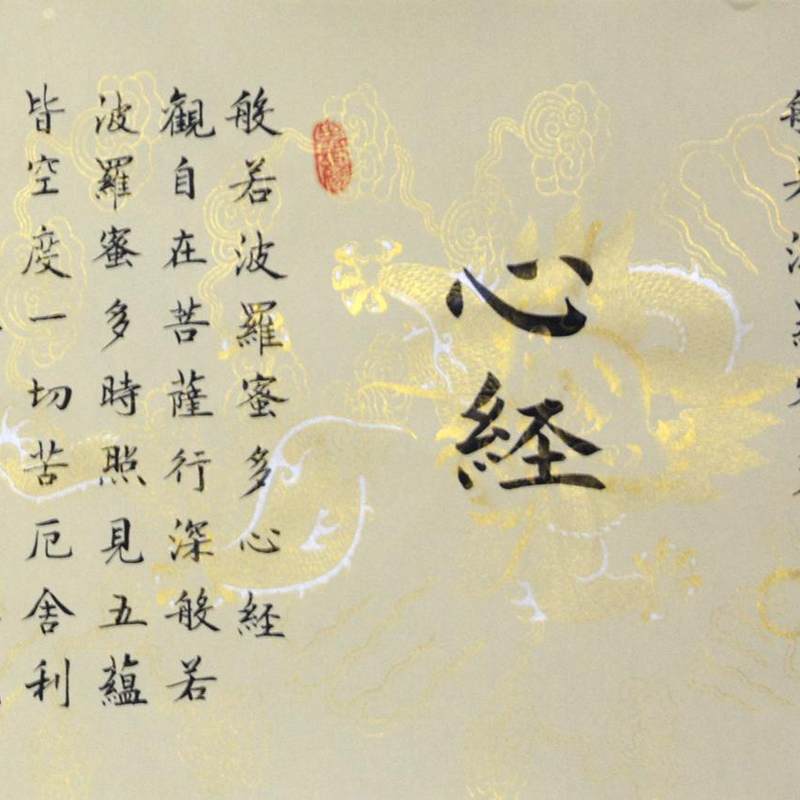 心経
般若波羅蜜多心経
觀自在菩薩行深般若
波羅蜜多時照見五蘊
皆空度一切苦厄舍利